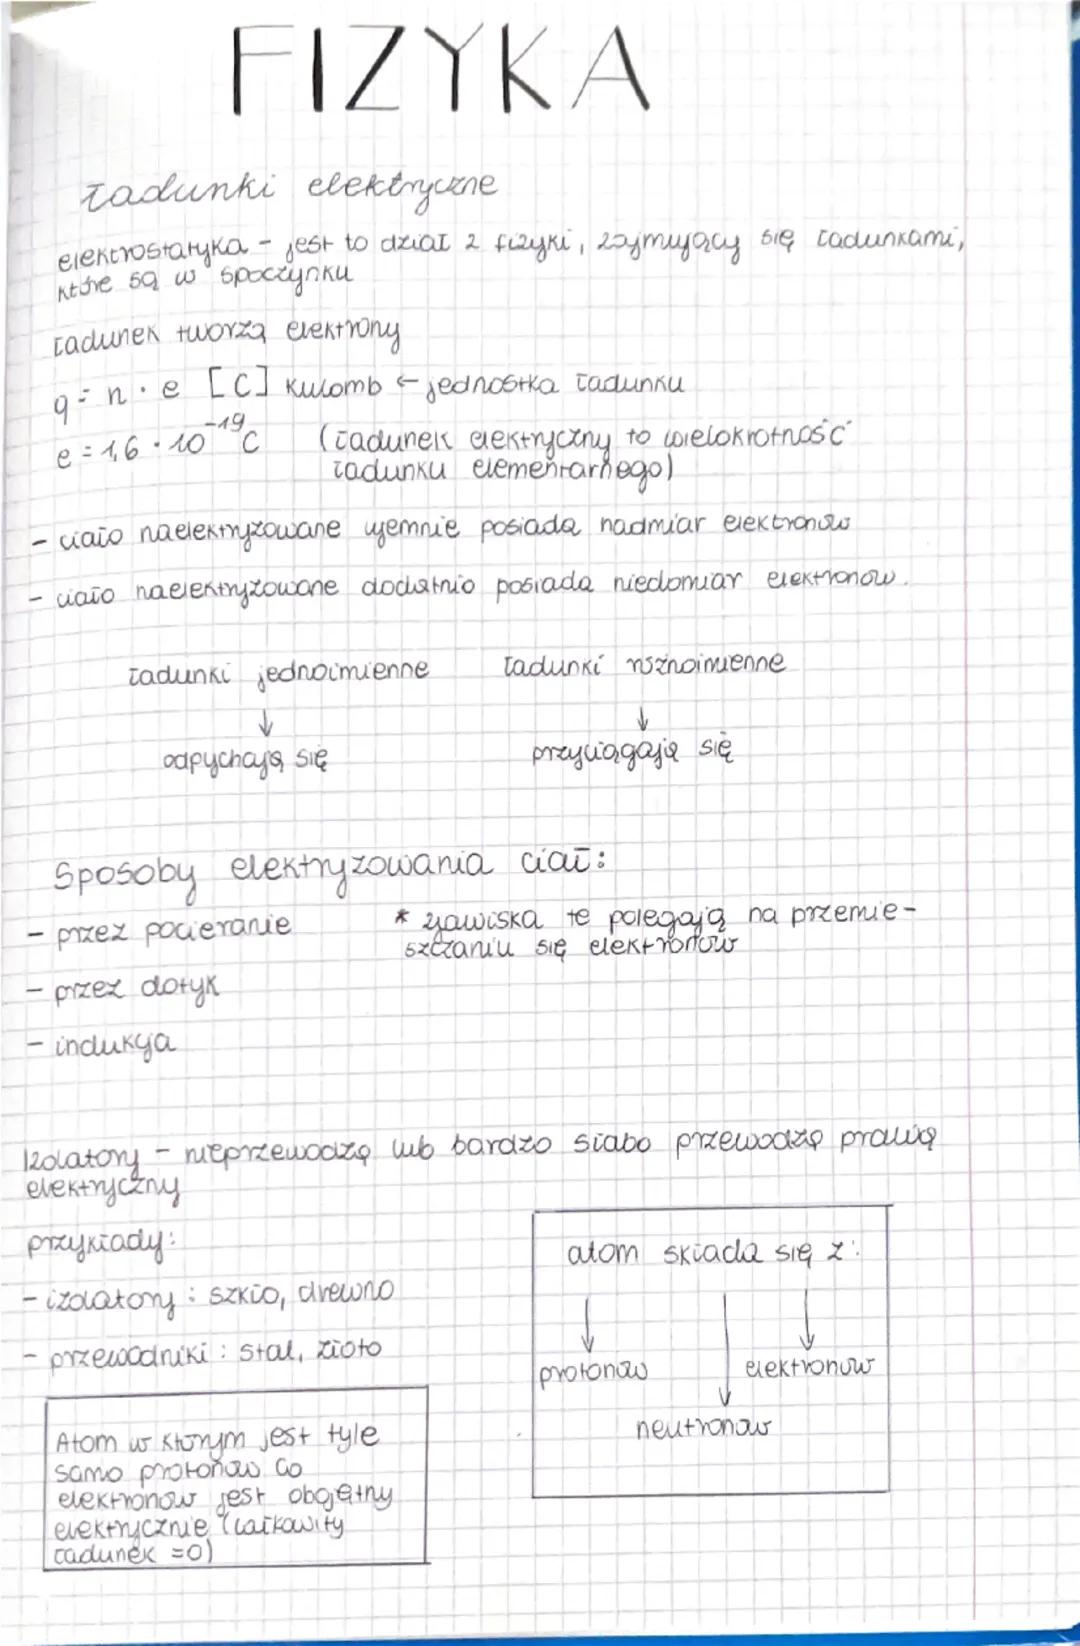 FIZYKA
Ładunki elektryczne
elektrostatyka - jest to dział z fizyki, zajmujący się ładunkami,
które są w spoczynku
ładunek tworzą elektrony
q = n · e [C] kulomb ← jednostka ładunku
e = 1,6 · 10⁻¹⁹ C (ładunek elektryczny to wielokrotność
ładunku elementarnego)
- ciało naelektryzowane ujemnie posiada nadmiar elektronów
- ciało naelektryzowane dodatnio posiada niedomiar elektronów.
ładunki jednoimienne ładunki różnoimienne
↓ ↓
odpychają się przyciągają się
Sposoby elektryzowania ciał:
- przez pocieranie * zjawiska te polegają na przemie-
szczaniu się elektronów
- przez dotyk
- indukcja
Izolatory - nieprzewodzą lub bardzo słabo przewodzą prąd
elektryczny
przykłady:
- izolatory : szkło, drewno
- przewodniki : stal, złoto
atom składa się z:
protonów elektronów
neutronów
Atom w którym jest tyle
samo protonów co
elektronów jest obojętny
elektrycznie (całkowity
ładunek = 0)